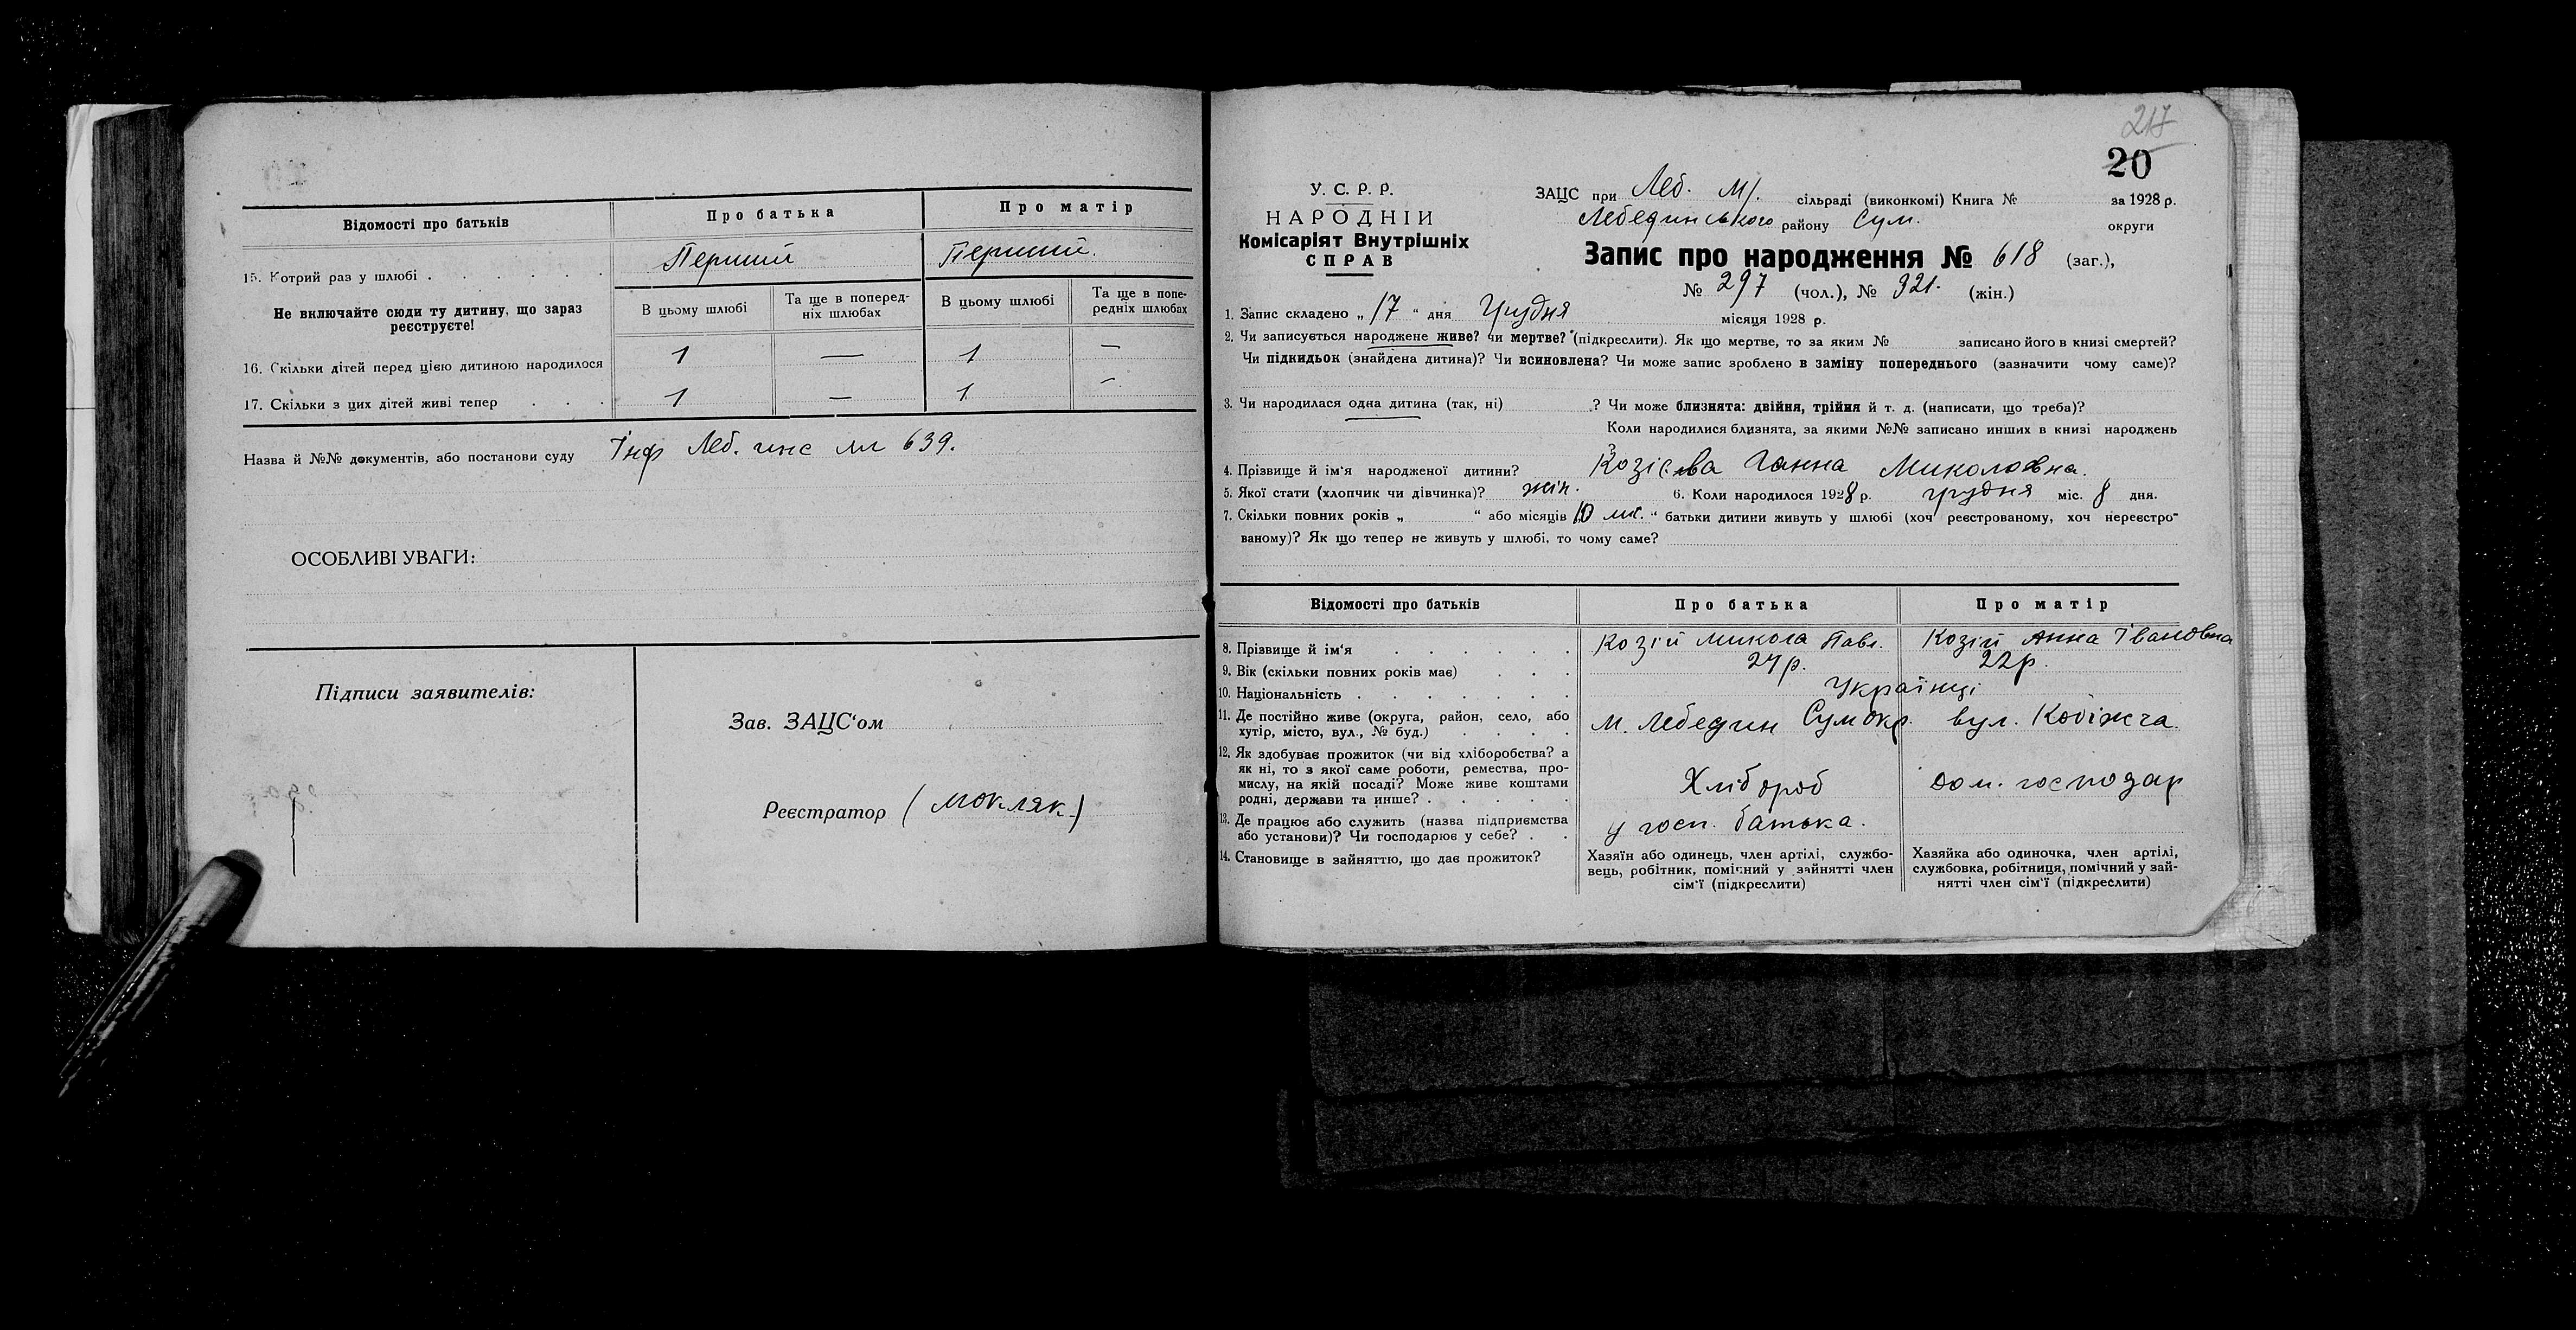 Відомості про батьків
Про батька
Про матір
15. Котрий раз у шлюбі . . . . . .
Перший
Перший.
Не включайте сюди ту дитину, що зараз
реєструєте!
В цьому шлюбі
Та ще в поперед-
ніх шлюбах
В цьому шлюбі
Та ще в попе-
редніх шлюбах
16. Скільки дітей перед цією дитиною народилося
1 — 1 —
17. Скільки з цих дітей живі тепер . . .
1 — 1 —
Назва й №№ документів, або постанови суду Інф Леб. 639.
ОСОБЛИВІ УВАГИ:
Підписи заявителів:
Зав. ЗАЦС‘ом
Реєстратор (Мокляк)
217
20
У. С. Р. Р.
НАРОДНІЙ
Комісаріят Внутрішніх
СПРАВ
ЗАЦС при Леб. М/. сільраді (виконкомі) Книга № за 1928 р.
Лебединського району Сум. округи
Запис про народження № 618 (заг.),
№ 297 (чол.), № 321. (жін.)
1. Запис складено „ 17 “ дня Грудня місяця 1928 р.
2. Чи записується народжене живе? чи мертве? (підкреслити). Як що мертве, то за яким № записано його в книзі смертей?
Чи підкидьок (знайдена дитина)? Чи всиновлена? Чи може запис зроблено в заміну попереднього (зазначити чому саме)?
3. Чи народилася одна дитина (так, ні) ? Чи може близнята: двійня, трійня й т. д. (написати, що треба)?
Коли народилися близнята, за якими №№ записано инших в книзі народжень
4. Прізвище й ім‘я народженої дитини? Ганна Миколовна.
5. Якої стати (хлопчик чи дівчинка)? жін. 6. Коли народилося 1928 р. грудня міс. 8 дня.
7. Скільки повних років „ “ або місяців 10 міс. “ батьки дитини живуть у шлюбі (хоч реєстрованому, хоч нереєстро-
ваному)? Як що тепер не живуть у шлюбі, то чому саме?
Відомості про батьків
Про батька
Про матір
8. Прізвище й ім‘я . . . . . .
Козій Микола Павл.
Козій Анна Івановна
9. Вік (скільки повних років має) . . .
24 р.
22 р.
10. Національність . . . . . . .
Українці
11. Де постійно живе (округа, район, село, або
хутір, місто, вул., № буд.) . . . .
м. Лебедин Сум окр. вул. Кобіжча.
12. Як здобуває прожиток (чи від хліборобства? а
як ні, то з якої саме роботи, ремества, про-
мислу, на якій посаді? Може живе коштами
родні, держави та инше? . . . . .
Хлібороб
дом. господар
13. Де працює або служить (назва підприємства
або установи)? Чи господарює у себе? . .
у госп. батька.
14. Становище в зайняттю, що дає прожиток?
Хазяїн або одинець, член артілі, службо-
вець, робітник, помічний у зайнятті член
сім‘ї (підкреслити)
Хазяйка або одиночка, член артілі,
службовка, робітниця, помічний у зай-
нятті член сім‘ї (підкреслити)